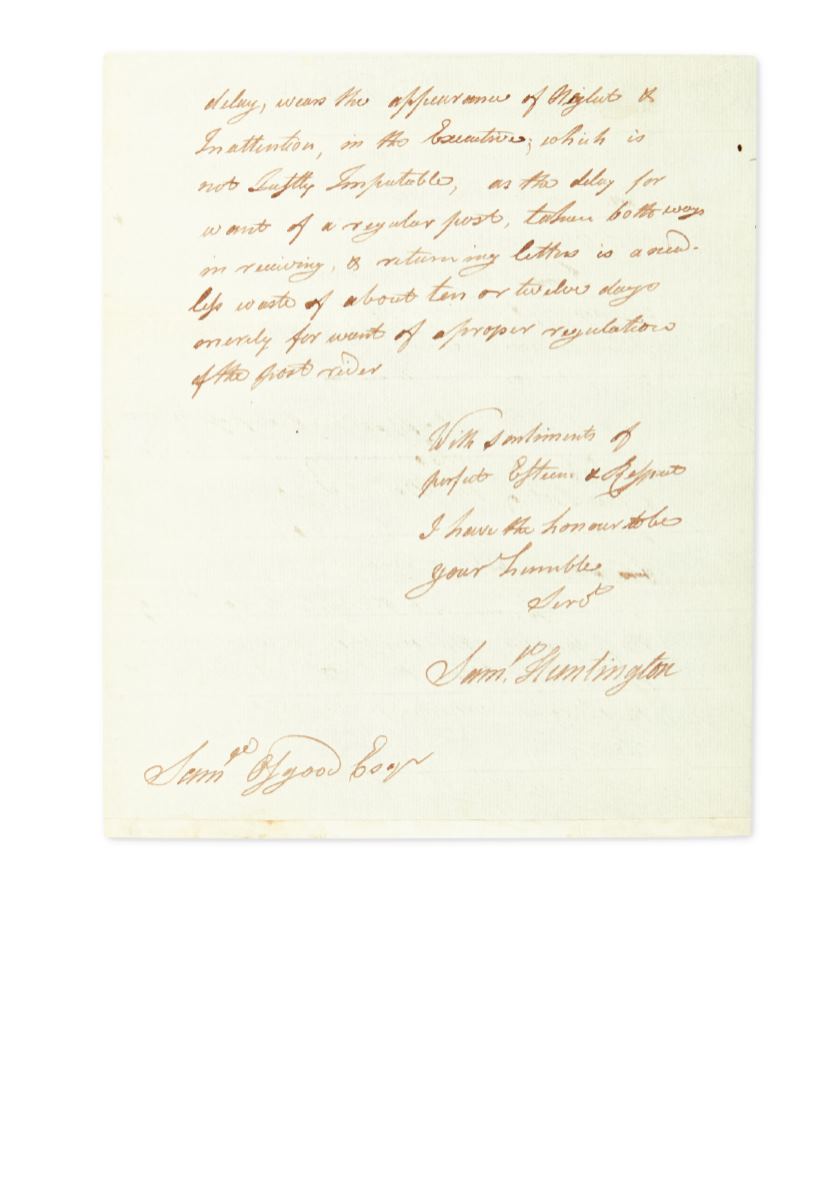 delay, wears the appearance of Neglect &
Inattention, in the Executive; which is
not Justly Imputable, as the delay for
want of a regular post, taken both ways
in receiving, & returning letters is a need-
less waste of about ten or twelve days
merely for want of a proper regulation
of the post rider
With sentiments of
perfect Esteem & Respect
I have the honour to be
your humble
Servt
Saml. Huntington
Saml Osgood Esqr